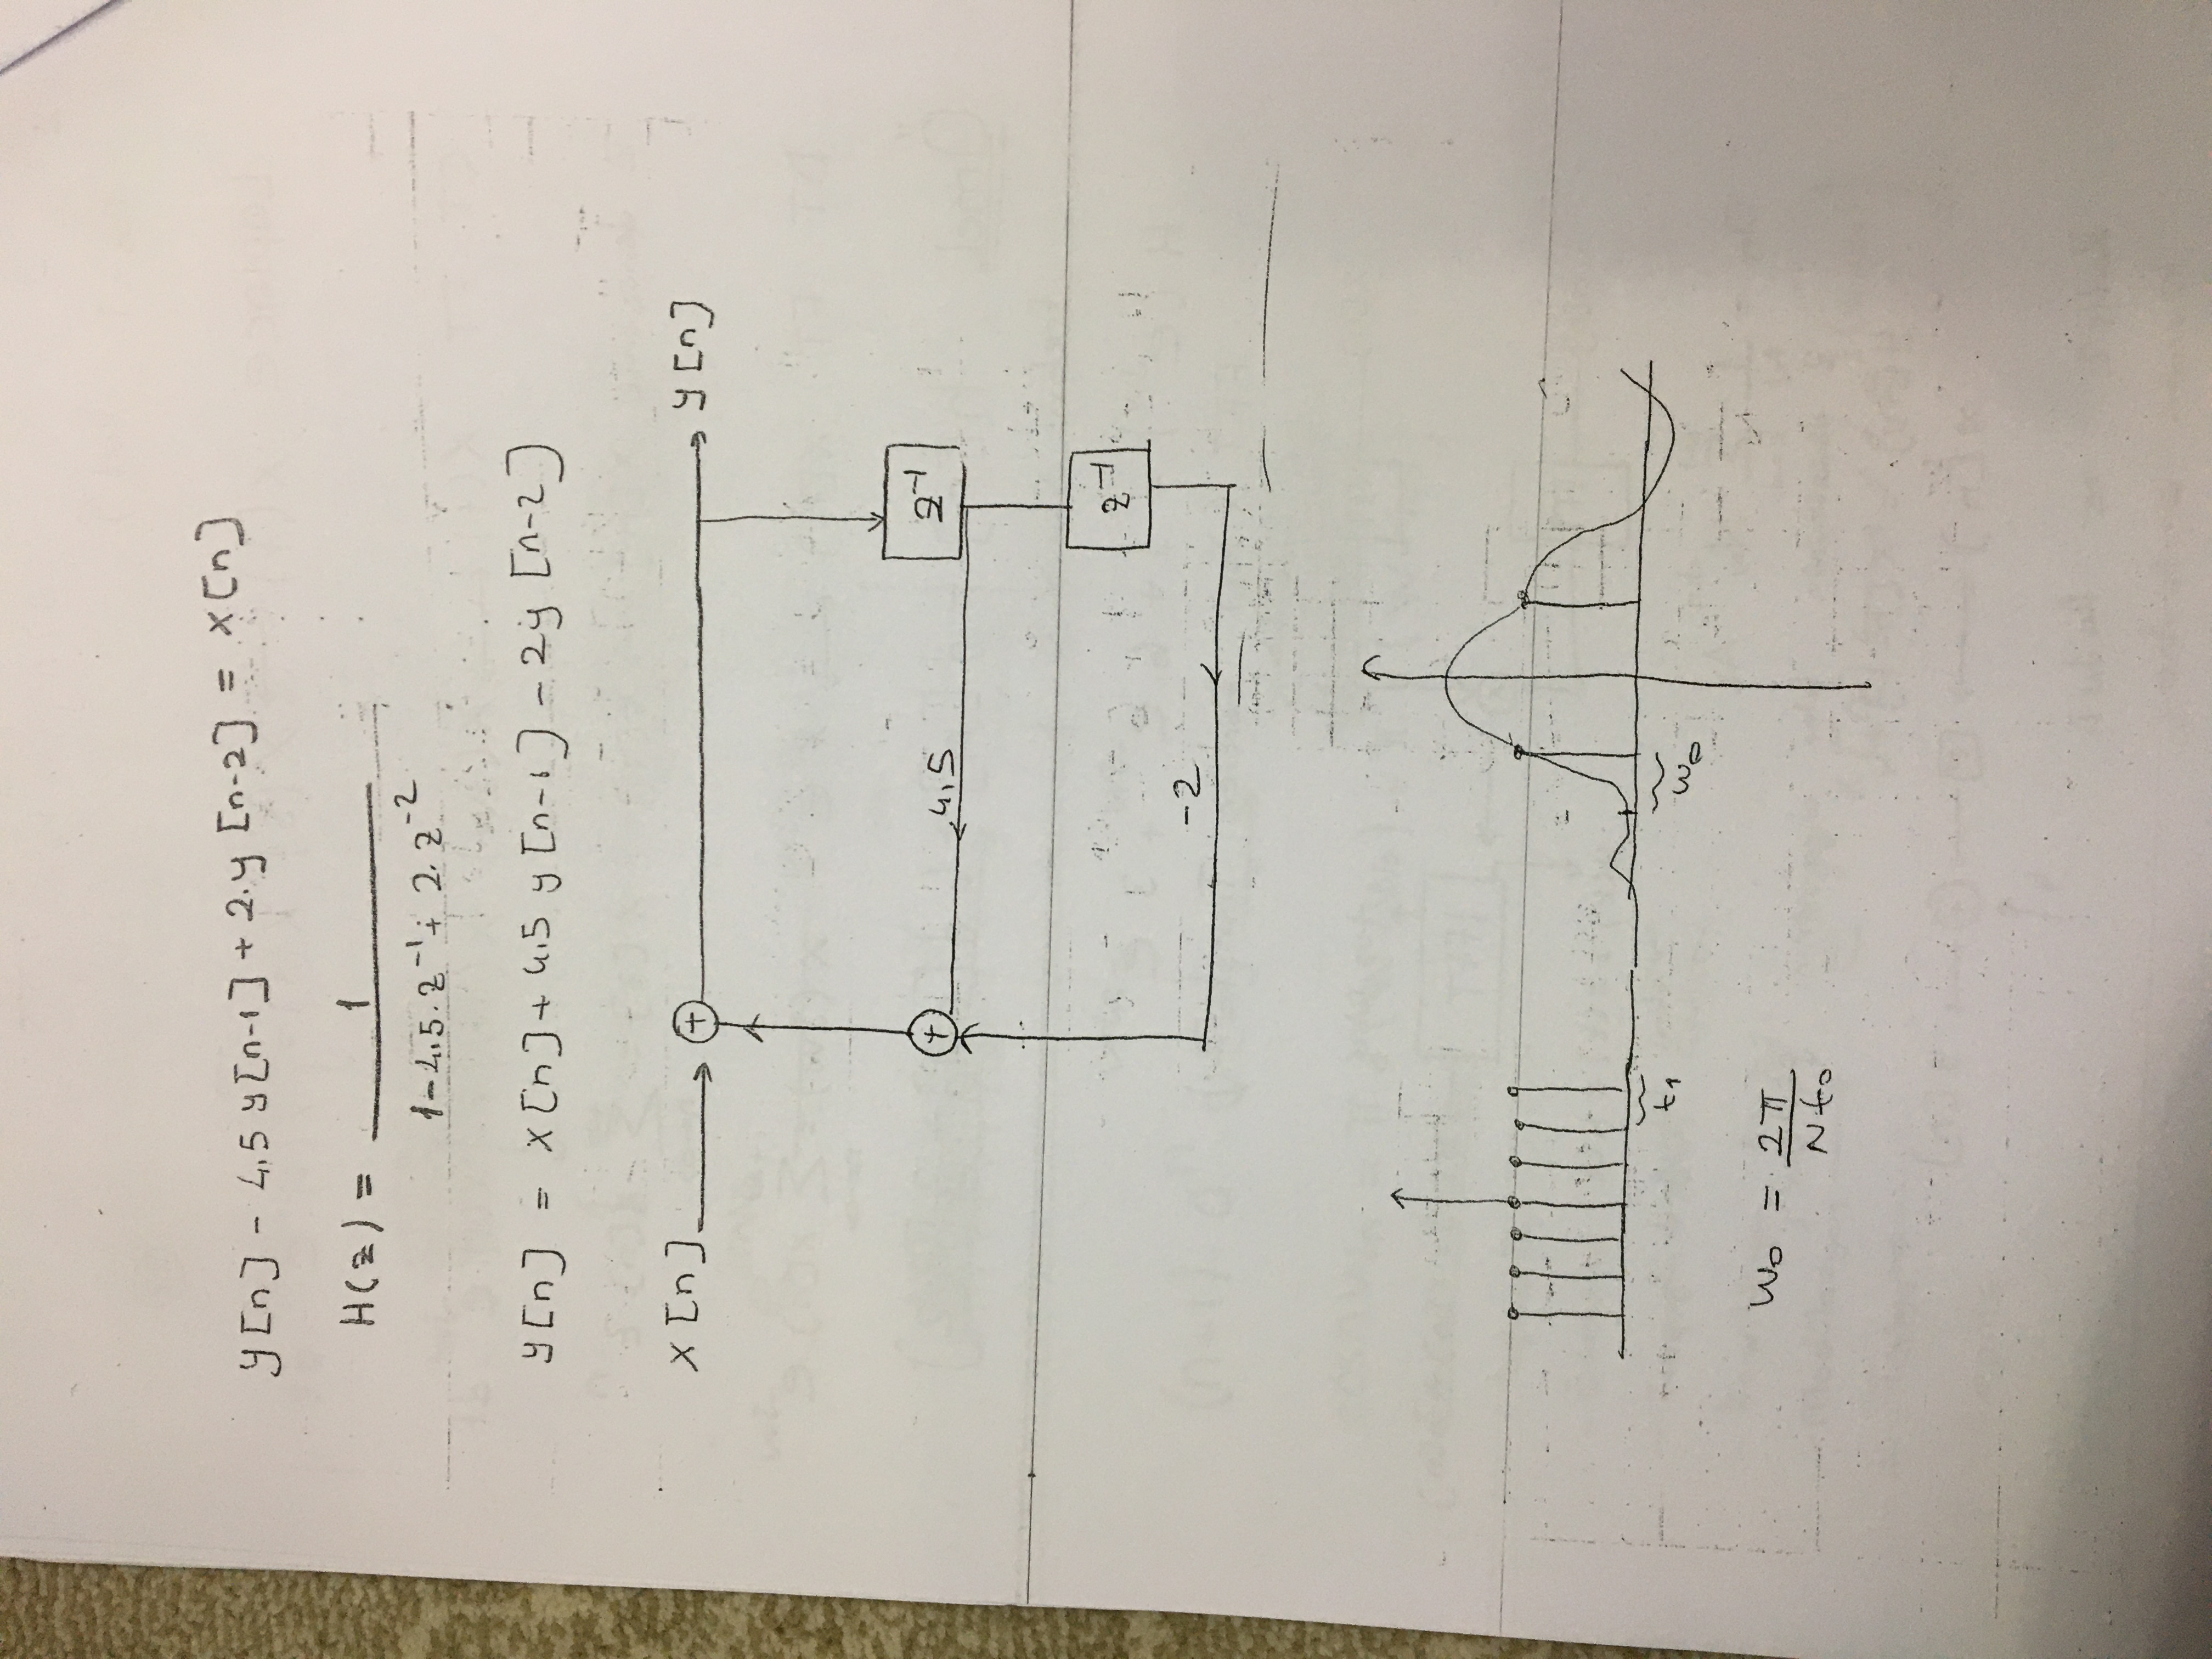 y[n] - 4,5 y[n-1] + 2.y [n-2] = x[n]
H(z) = 1
1-4,5.z⁻¹+ 2.z⁻²
y[n] = x[n]+ 4,5 y[n-1] - 2y [n-2]
x[n] + y[n]
+ 4,5 z⁻¹
z⁻¹
-2
t₁ w₀
w₀ = 2π
Nt₀